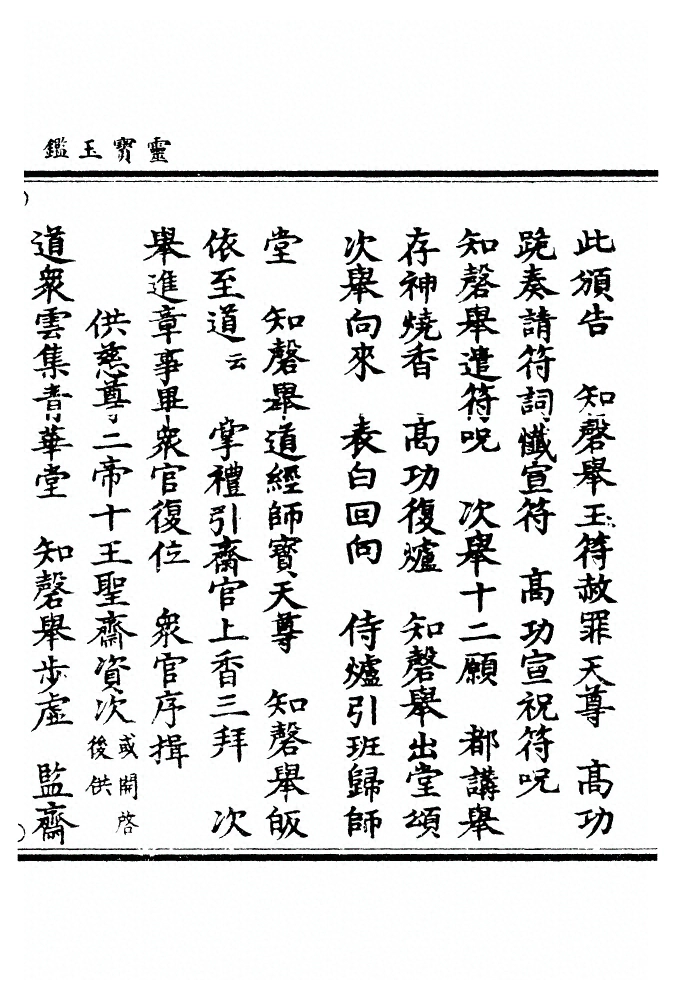 靈寶玉鑑
此頒告　知磬舉玉符赦罪天尊　高功
跪奏請符詞懺宣符　高功宣祝符呪
知磬舉遣符呪　次舉十二願　都講舉
存神燒香　高功復爐　知磬舉出堂頌
次舉向來　表白回向　侍爐引班歸師
堂　知磬舉道經師寶天尊　知磬舉皈
依至道云　掌禮引齋官上香三拜　次
舉進章事畢衆官復位　衆官序揖
供慈尊二帝十王聖齋資次或開啓後供
道衆雲集青華堂　知磬舉步虛　監齋